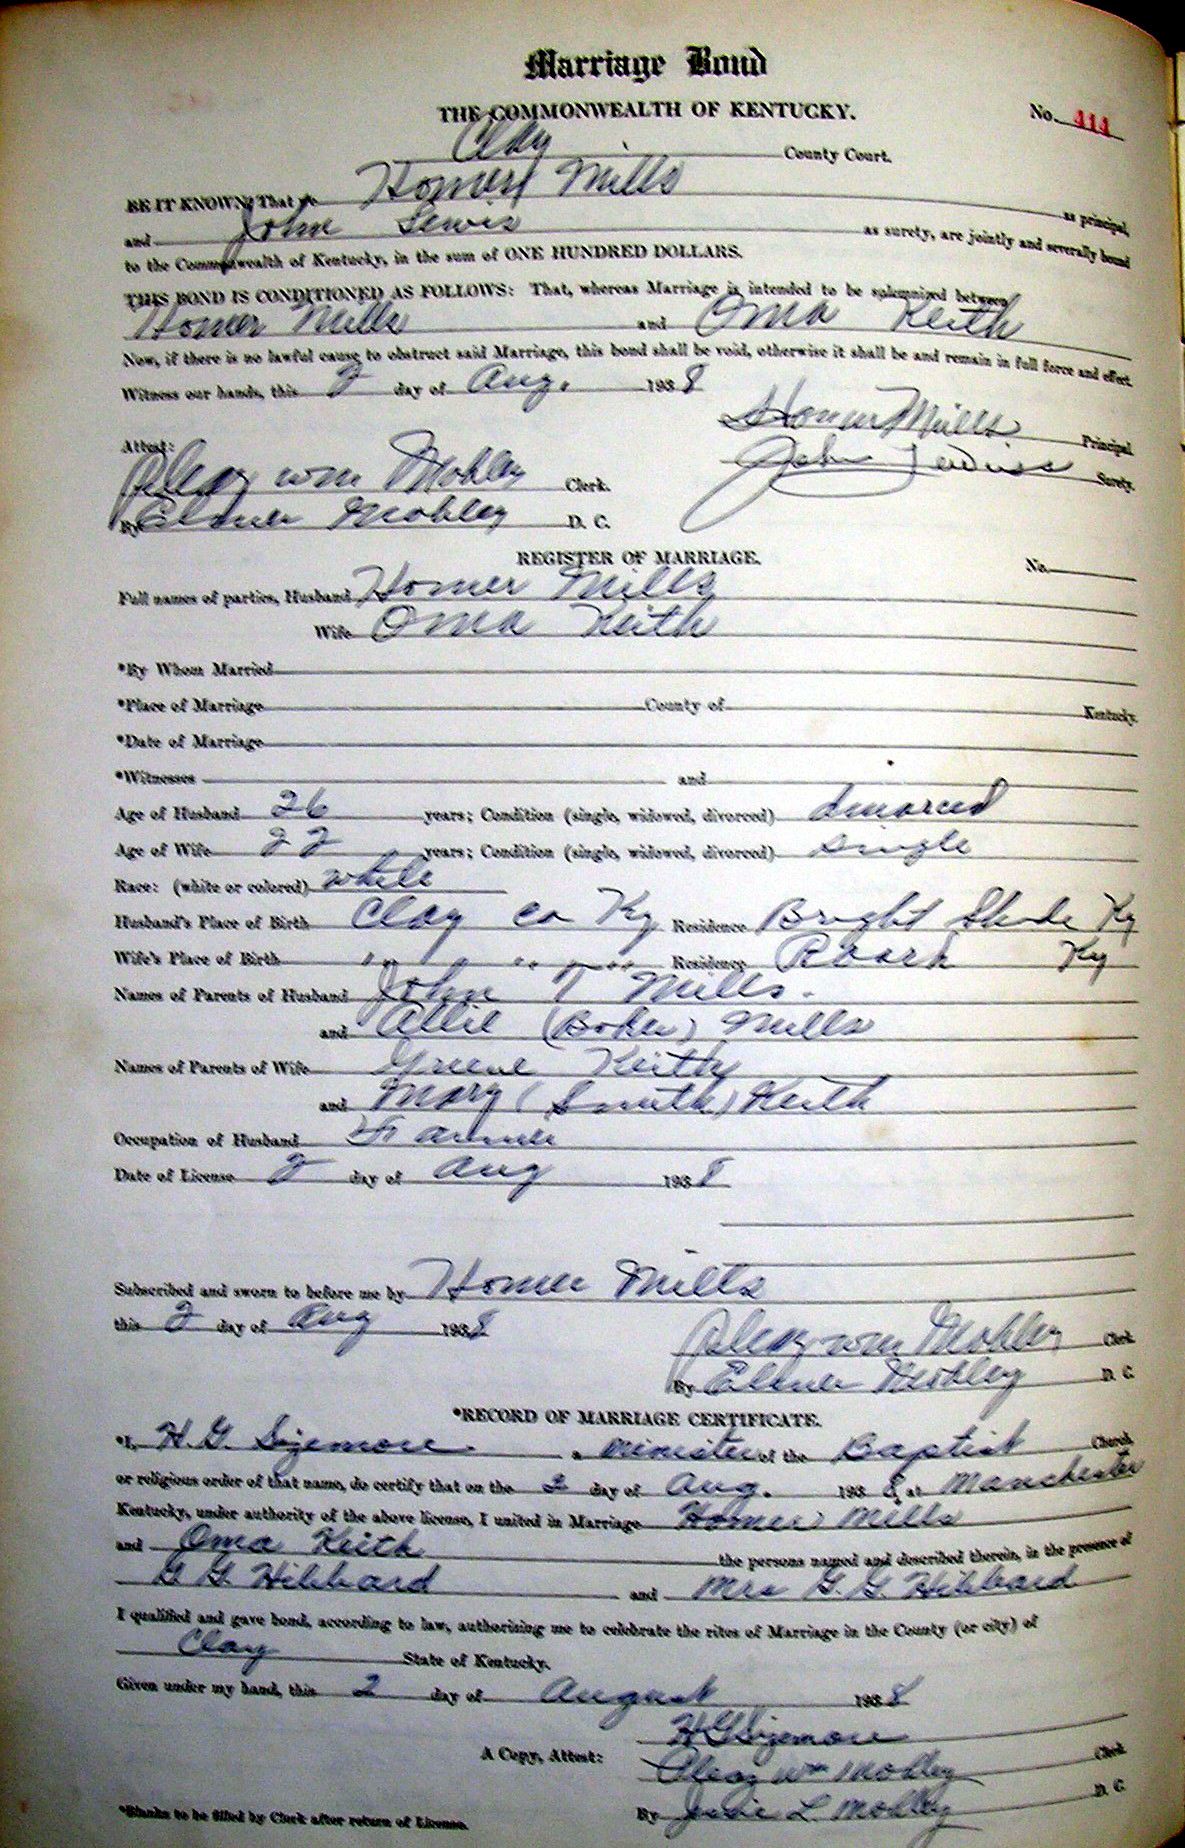 Marriage Bond
THE COMMONWEALTH OF KENTUCKY. No. 414
Clay County Court.
BE IT KNOWN, That we Homer Mills as principal,
and John Lewis as surety, are jointly and severally bound
to the Commonwealth of Kentucky, in the sum of ONE HUNDRED DOLLARS.
THIS BOND IS CONDITIONED AS FOLLOWS: That, whereas Marriage is intended to be solemnized between
Homer Mills and Oma Keith
Now, if there is no lawful cause to obstruct said Marriage, this bond shall be void, otherwise it shall be and remain in full force and effect.
Witness our hands, this 2 day of Aug. 1938
Homer Mills Principal.
Attest: John Surety.
wm Mobley Clerk.
By Elmer Mobley D. C.
REGISTER OF MARRIAGE. No.
Full names of parties, Husband Homer Mills
Wife Oma Keith
*By Whom Married
*Place of Marriage County of Kentucky.
*Date of Marriage
*Witnesses and
Age of Husband 26 years; Condition (single, widowed, divorced) divorced
Age of Wife 22 years; Condition (single, widowed, divorced) single
Race: (white or colored) white
Husband's Place of Birth Clay co Ky Residence Bright Shade Ky
Wife's Place of Birth " " " " " Residence Roark Ky
Names of Parents of Husband John T Mills.
and Allie (Baker) Mills
Names of Parents of Wife Greene Keith
and Mary (Smith) Keith
Occupation of Husband Farmer
Date of License 2 day of Aug 1938
Subscribed and sworn to before me by Homer Mills
this 2 day of Aug 1938
wm Mobley Clerk
By Elmer Mobley D. C.
*RECORD OF MARRIAGE CERTIFICATE.
*I, H. G. Sizemore a minister of the Baptist Church
or religious order of that name, do certify that on the 2 day of Aug. 1938, at Manchester
Kentucky, under authority of the above license, I united in Marriage Homer Mills
and Oma Keith the persons named and described therein, in the presence of
G. G. Hibbard and Mrs G. G. Hibbard
I qualified and gave bond, according to law, authorizing me to celebrate the rites of Marriage in the County (or city) of
Clay State of Kentucky.
Given under my hand, this 2 day of August 1938
H G Sizemore
A Copy, Attest: Wm Mobley Clerk
By L. Mobley D. C.
*Blanks to be filled by Clerk after return of License.